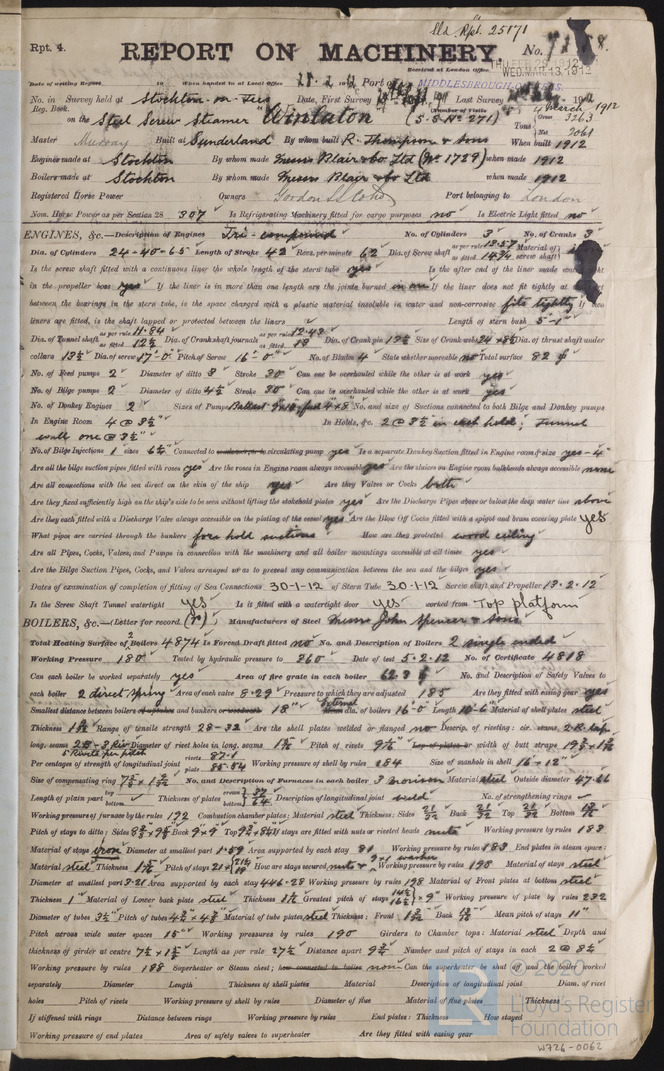 Sld Rpt. 25171
Rpt. 4.
REPORT ON MACHINERY.
No.
Received at London Office
WED. MAR. 13 1912
Date of writing Report 19 When handed in at Local Office 28. 2. 1912 Port of MIDDLESBROUGH
No. in Survey held at Stockton-on-Tees Date, First Survey Last Survey March 1912
Reg. Book.
on the Steel Screw Steamer Winlaton (S.S. No. 271)
Tons Gross 3263 Net 2061
Master Murray Built at Sunderland By whom built R. Thompson & Sons When built 1912
Engines made at Stockton By whom made Messrs Blair & Co. Ltd (No. 1729) when made 1912
Boilers made at Stockton By whom made Messrs Blair & Co Ltd when made 1912
Registered Horse Power Owners Port belonging to London
Nom. Horse Power as per Section 28 307 Is Refrigerating Machinery fitted for cargo purposes no Is Electric Light fitted no
ENGINES, &c.—Description of Engines Tri-compound No. of Cylinders 3 No. of Cranks 3
Dia. of Cylinders 24-40-65 Length of Stroke 42 Revs. per minute 62 Dia. of Screw shaft as per rule 13.57 as fitted Material of screw shaft
Is the screw shaft fitted with a continuous liner the whole length of the stern tube yes Is the after end of the liner made
in the propeller boss yes If the liner is in more than one length are the joints burned in one If the liner does not fit tightly at
between the bearings in the stern tube, is the space charged with a plastic material insoluble in water and non-corrosive fits tightly If two
liners are fitted, is the shaft lapped or protected between the liners Length of stern bush 5'-1"
Dia. of Tunnel shaft as per rule 11.84 as fitted 12½ Dia. of Crank shaft journals as per rule 12.43 as fitted 13 Dia. of Crank pin Size of Crank webs Dia. of thrust shaft under
collars 13½ Dia. of screw 17'-0" Pitch of Screw 16'-0" No. of Blades 4 State whether moveable no Total surface 82
No. of Feed pumps 2 Diameter of ditto 3 Stroke 30 Can one be overhauled while the other is at work yes
No. of Bilge pumps 2 Diameter of ditto 4½ Stroke 30 Can one be overhauled while the other is at work yes
No. of Donkey Engines 2 Sizes of Pumps No. and size of Suctions connected to both Bilge and Donkey pumps
In Engine Room 4 @ 3½" In Holds, &c. 2 @ 3½" in each hold; Tunnel
well one @ 3½"
No. of Bilge Injections 1 sizes 6½ Connected to circulating pump yes Is a separate Donkey Suction fitted in Engine room & size yes-4"
Are all the bilge suction pipes fitted with roses yes Are the roses in Engine room always accessible yes Are the sluices on Engine room bulkheads always accessible none
Are all connections with the sea direct on the skin of the ship yes Are they Valves or Cocks both
Are they fixed sufficiently high on the ship's side to be seen without lifting the stokehold plates yes Are the Discharge Pipes above or below the deep water line above
Are they each fitted with a Discharge Valve always accessible on the plating of the vessel yes Are the Blow Off Cocks fitted with a spigot and brass covering plate yes
What pipes are carried through the bunkers fore hold suctions How are they protected wood ceiling
Are all Pipes, Cocks, Valves, and Pumps in connection with the machinery and all boiler mountings accessible at all times yes
Are the Bilge Suction Pipes, Cocks, and Valves arranged so as to prevent any communication between the sea and the bilges yes
Dates of examination of completion of fitting of Sea Connections 30-1-12 of Stern Tube 30-1-12 Screw shaft and Propeller 13.2.12
Is the Screw Shaft Tunnel watertight yes Is it fitted with a watertight door yes worked from Top platform
BOILERS, &c.—(Letter for record (r)) Manufacturers of Steel Messrs John Spencer & Sons
Total Heating Surface of 2 Boilers 4874 Is Forced Draft fitted no No. and Description of Boilers 2 single ended
Working Pressure 180 Tested by hydraulic pressure to 360 Date of test 5.2.12 No. of Certificate 4818
Can each boiler be worked separately yes Area of fire grate in each boiler 62.3 No. and Description of Safety Valves to
each boiler 2 direct spring Area of each valve 8.29 Pressure to which they are adjusted 185 Are they fitted with easing gear yes
Smallest distance between boilers or uptakes and bunkers or woodwork 18" dia. of boilers 16'-0" Length 10-6" Material of shell plates steel
Thickness Range of tensile strength 28-32 Are the shell plates welded or flanged no Descrip. of riveting: cir. seams 2 R. lap
long. seams Diameter of rivet holes in long. seams Pitch of rivets Lap of plates or width of butt straps
Per centages of strength of longitudinal joint rivets 87.1 plate 85.54 Working pressure of shell by rules 184 Size of manhole in shell 16"×12"
Size of compensating ring No. and Description of Furnaces in each boiler 3 morison Material steel Outside diameter 47.66
Length of plain part top bottom Thickness of plates crown bottom Description of longitudinal joint weld No. of strengthening rings
Working pressure of furnace by the rules 192 Combustion chamber plates: Material steel Thickness: Sides 21/32 Back 21/32 Top 21/32 Bottom
Pitch of stays to ditto: Sides Back 9"×9" Top If stays are fitted with nuts or riveted heads nuts Working pressure by rules 183
Material of stays iron Diameter at smallest part 1.59 Area supported by each stay 81 Working pressure by rules 183 End plates in steam space:
Material steel Thickness Pitch of stays How are stays secured nuts & washers Working pressure by rules 198 Material of stays steel
Diameter at smallest part 3.21 Area supported by each stay 446.28 Working pressure by rules 198 Material of Front plates at bottom steel
Thickness 1" Material of Lower back plate steel Thickness Greatest pitch of stays Working pressure of plate by rules 232
Diameter of tubes 3½" Pitch of tubes Material of tube plates steel Thickness: Front Back Mean pitch of stays 11"
Pitch across wide water spaces 15" Working pressures by rules 190 Girders to Chamber tops: Material steel Depth and
thickness of girder at centre Length as per rule 27½ Distance apart Number and pitch of stays in each 2 @ 8½
Working pressure by rules 188 Superheater or Steam chest; how connected to boiler none Can the superheater be shut off and the boiler worked
separately Diameter Length Thickness of shell plates Material Description of longitudinal joint Diam. of rivet
holes Pitch of rivets Working pressure of shell by rules Diameter of flue Material of flue plates Thickness
If stiffened with rings Distance between rings Working pressure by rules End plates: Thickness How stayed
Working pressure of end plates Area of safety valves to superheater Are they fitted with easing gear
© 2020
Lloyd's Register
Foundation
W726-0062